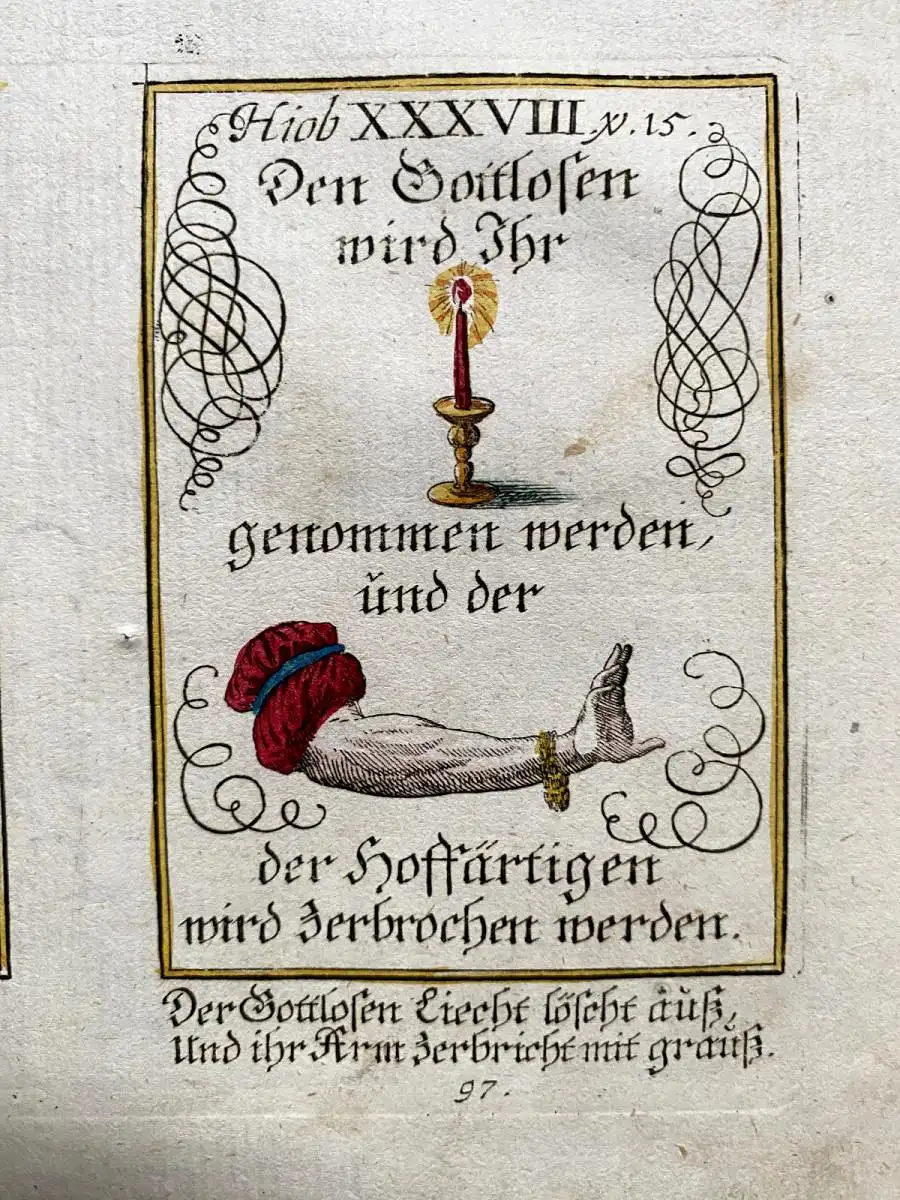 Hiob XXXVIII. v. 15.
Den Gottlosen
wird Ihr
genommen werden,
ŭnd der
der Hoffärtigen
wird zerbrochen werden.
Der Gottlosen Liecht löscht aŭß,
Und ihr Arm zerbricht mit graŭß.
97.